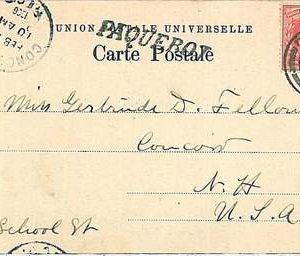 UNION POSTALE UNIVERSELLE
PAQUEBOT
Carte Postale
FEB
10 AM
CONC
Miss Gertrude D. Fellow
Concord
N. H
U. S. A
School St